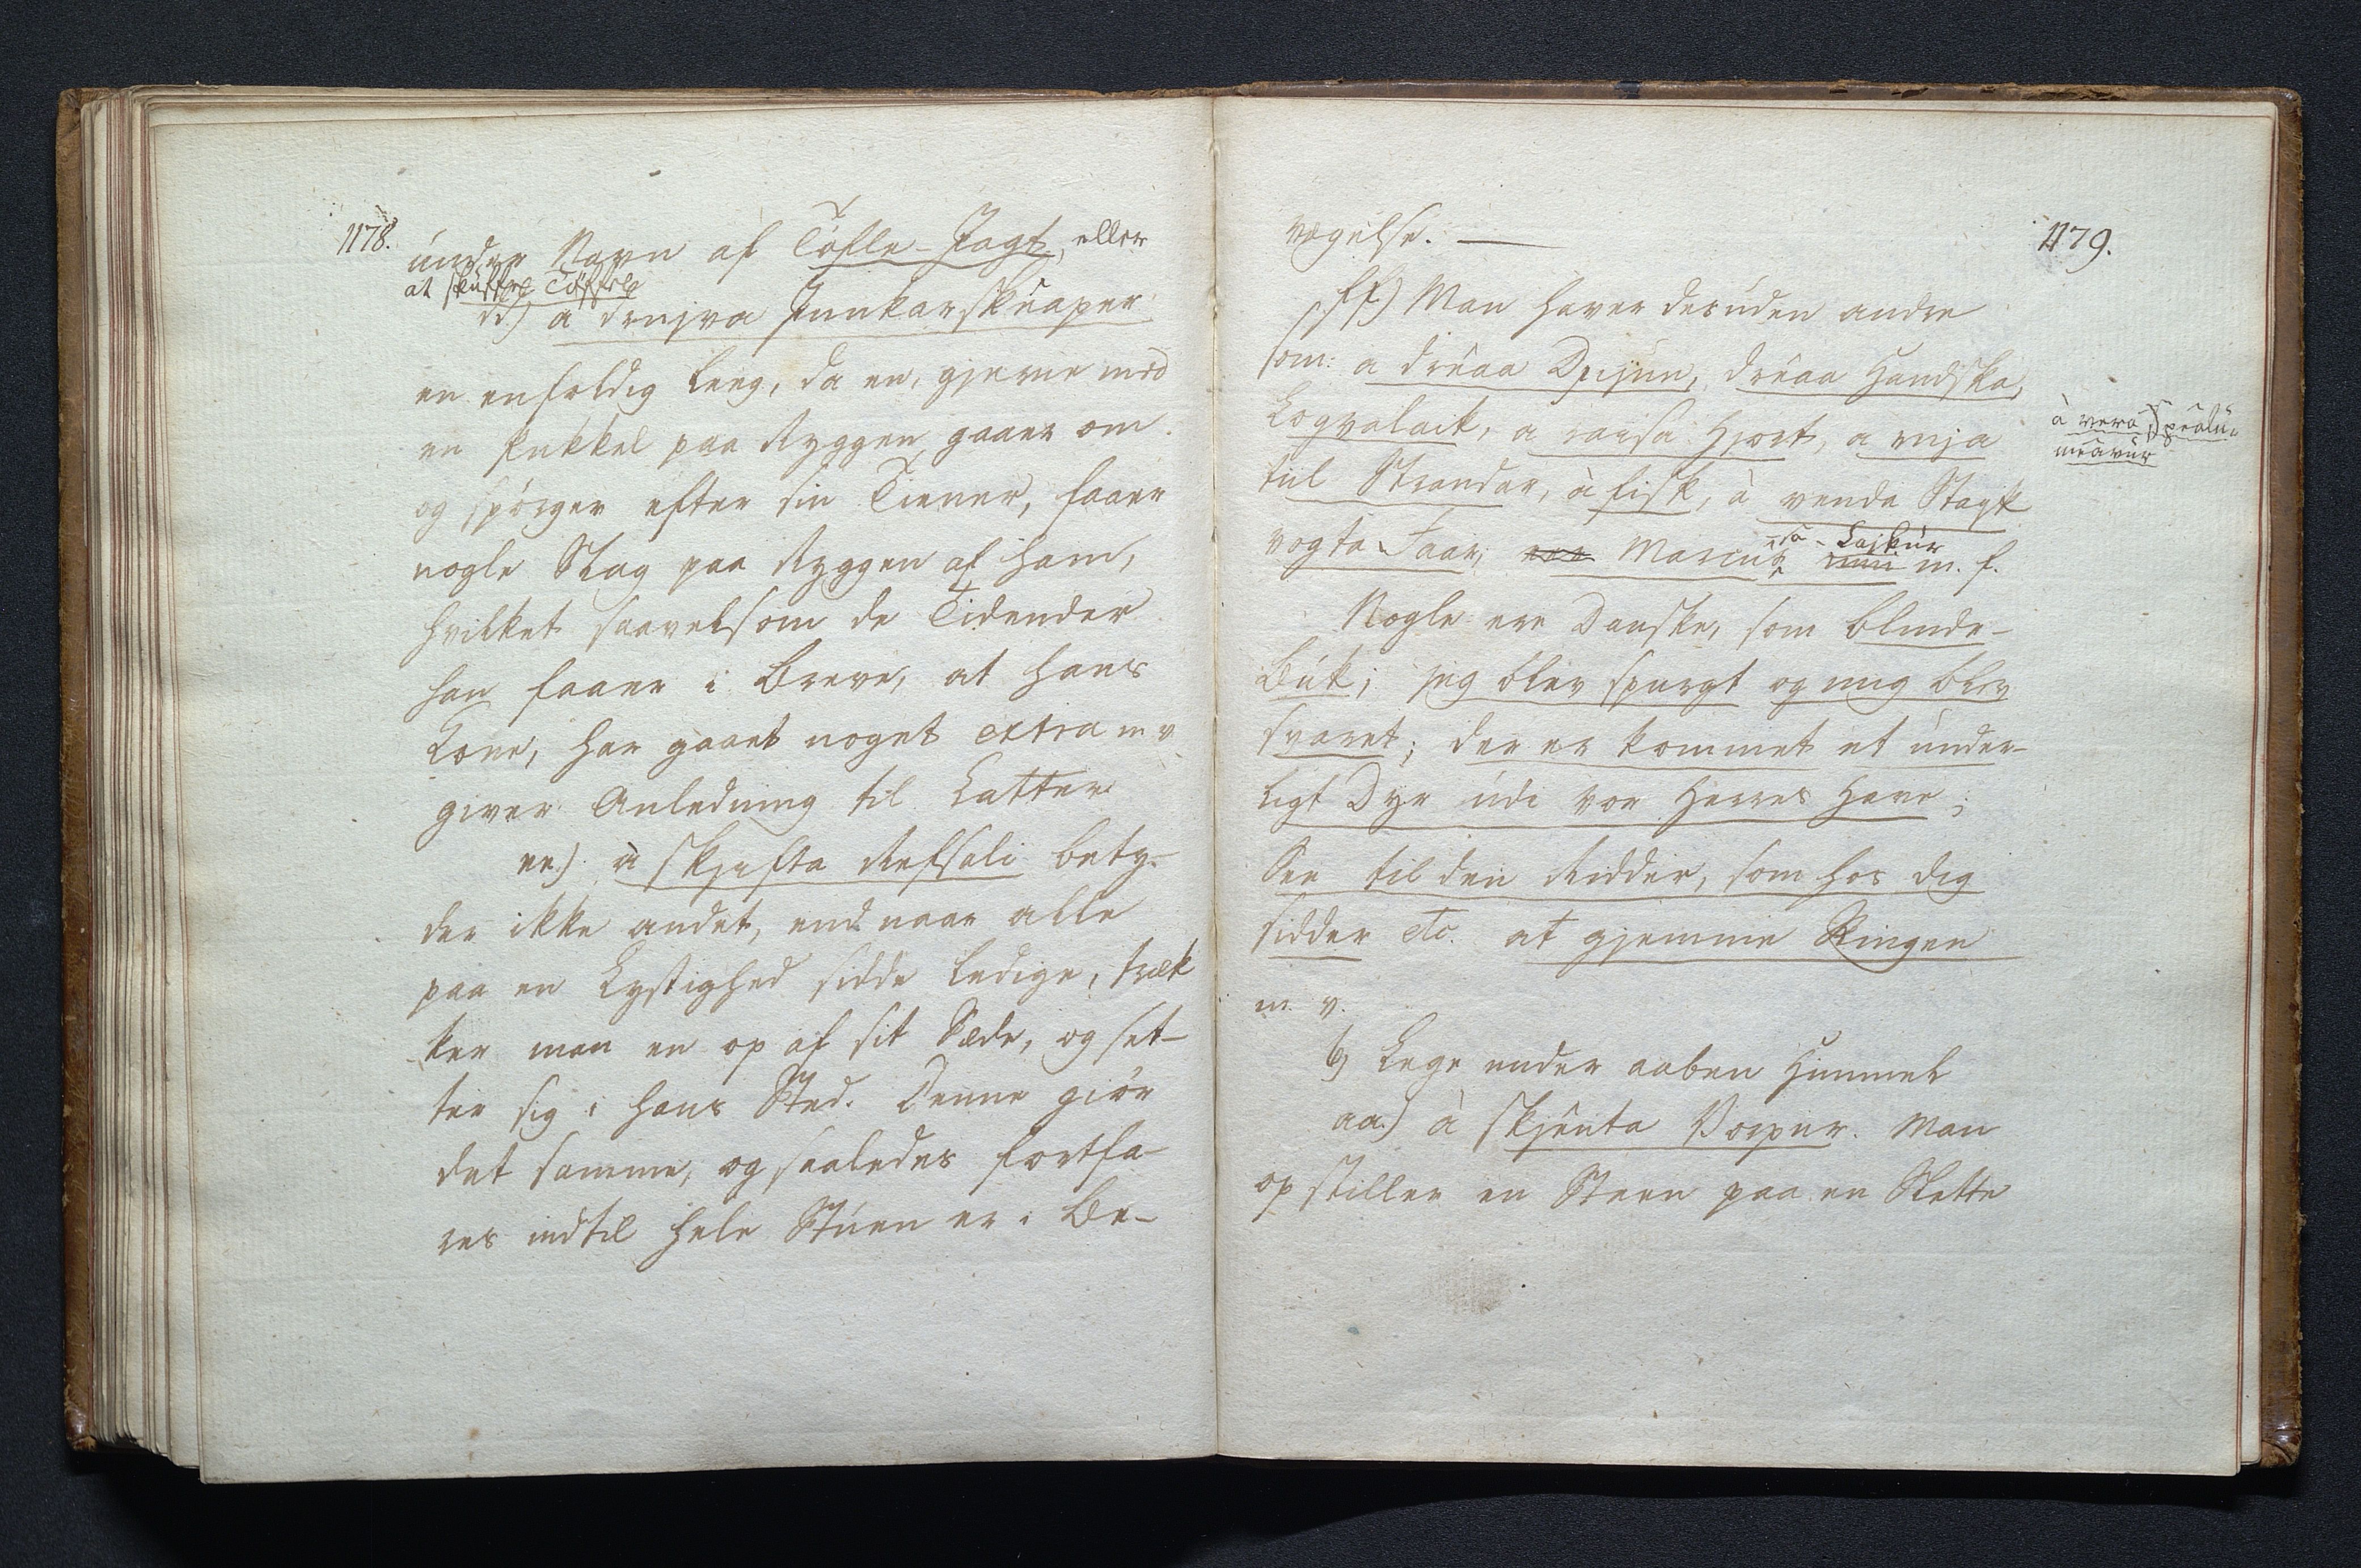 1178.
under Navn af Töfle-Jagt, eller
at skuffel Töffel
dd.) a drujva Junkarskuaper
en enfoldig Leeg, da en, gjerne med
en Pukkel paa Ryggen gaaer om
og spörger efter sin Tiener, faaer
nogle Slag paa Ryggen af ham,
hvilket saavelsom de Tidender
han faaer i Breve, at hans
Kone, har gaaet noget extra m v
giver Anledning til Latter
ee.) à skjefta Refsali bety-
der ikke andet, end naar alle
paa en Lystighed sidde ledige, træk
ker man en op af sit Sæde, og set-
ter sig i hans Sted. Denne giör
det samme, og saaledes fortfa-
res indtil hele Stúen er i Be-
vægelse. —
1179.
ff) Man haver desuden andre
som: a drêaa Dpijun, drêaa Handska,
Logvalaik, a raisa Hjort, a ruja
til Strandar, à fisk, à venda Stayk
à vera Spêalu-
mêavur
vogta Faar, Marcus sa - Lajkur m. f.
Nogle ere Danske, som blinde-
Buk; jeg blev spurgt og mig blev
svaret; der er kommet et under-
ligt Dyr udi vor Herres Have;
See til den Ridder, som hos dig
sidder etc. at gjemme Ringen
m. v.
b) Lege under aaben Himmel
aa.) à skjêuta Vorpur. Man
opstiller en Steen paa en Slette